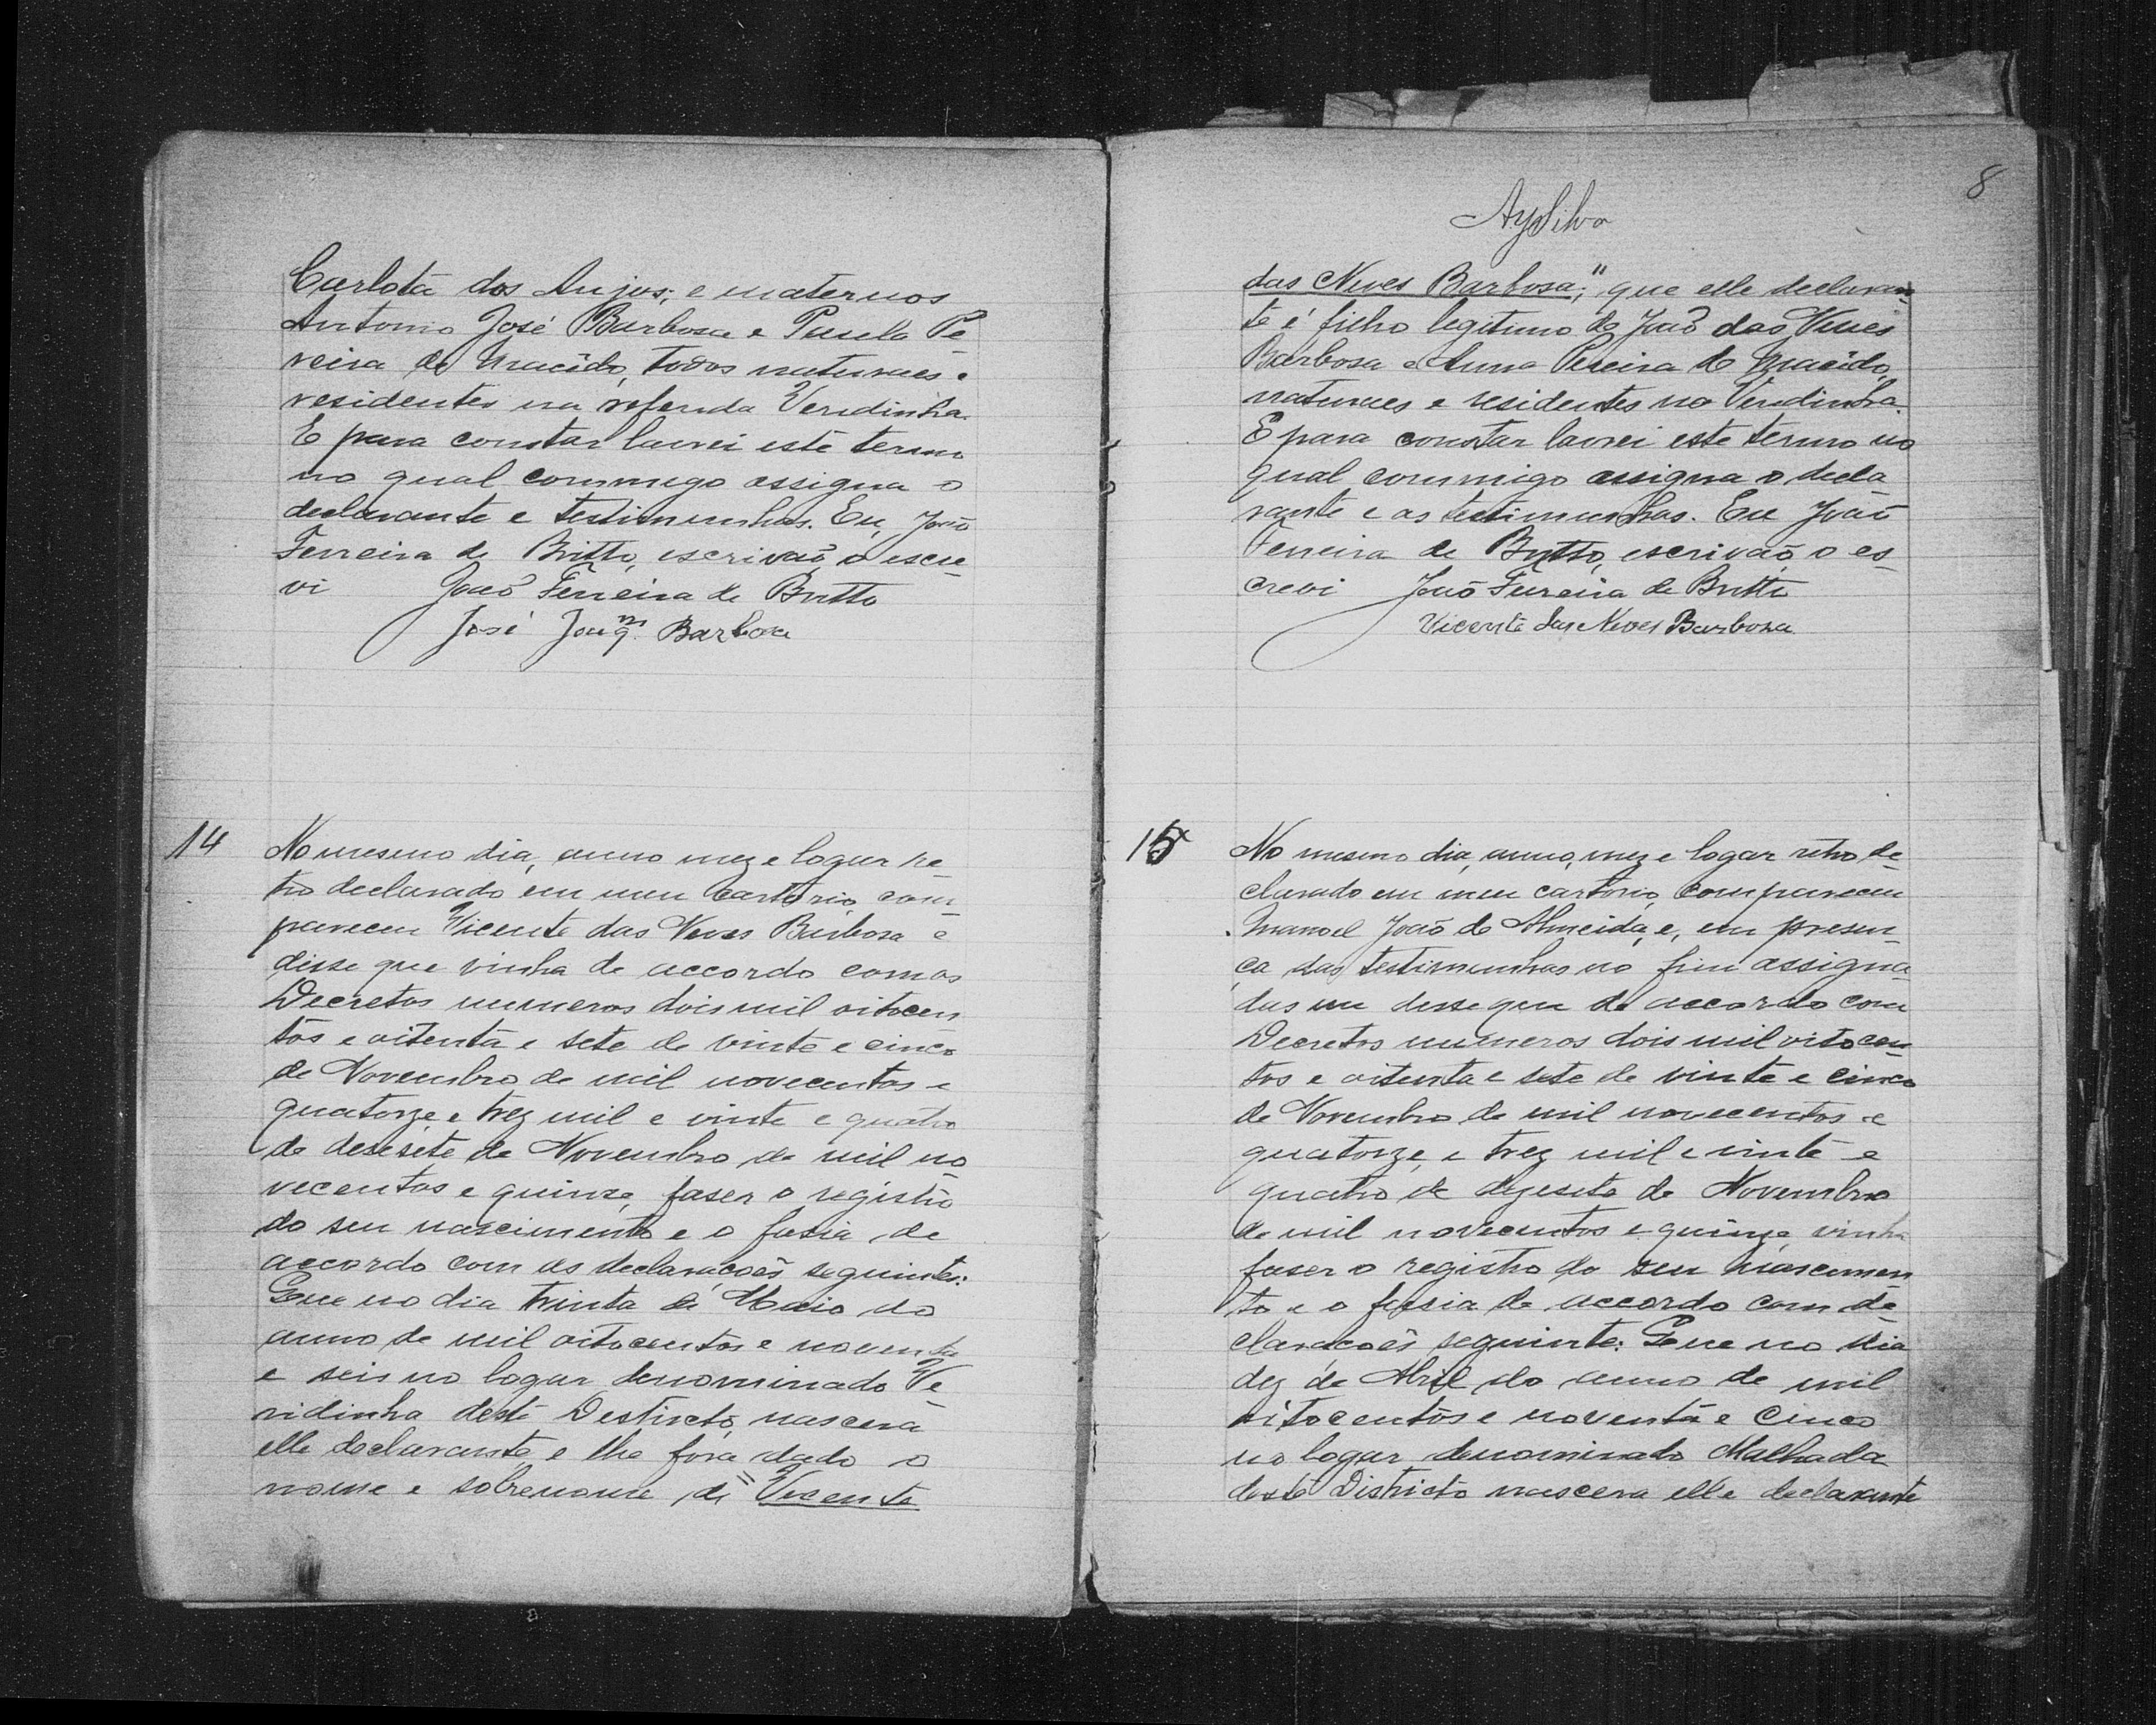 Carlota dos Anjos; e maternos
Antonio José Barbosa e Paula Pe
reira de Macêdo, todos naturaes e
residentes na referida Veridinha.
E para constar lavrei este termo
no qual commigo assigna o
declarante e testimunhas. Eu, João
Ferreira de Britto, escrivaõ, o escre
vi João Ferreira de Britto
José Joaqm. Barbosa
14
No mesmo dia, anno mez e logar re
tro declarado em meu cartorio, com
pareceu Vicente das Neves Barbosa e
disse que vinha de accordo com os
Decretos numeros dois mil oitocen
tos e oitenta e sete de vinte e cinco
de Novembro de mil novecentos e
quatorze e trez mil e vinte e quatro
de desesete de Novembro de mil no
vecentos e quinze, faser o registro
do seu nascimento e o fasia de
accordo com as declaraçoẽs seguintes:
Que no dia trinta de Maio do
anno de mil oitocentos e noventa
e seis no logar denominado Ve
ridinha deste Destricto, nascera
elle declarante e lhe fora dado o
nome e sobrenome de "Vicente
8
AySilva
das Neves Barbosa;" que elle declaran
te é filho legitimo de João das Neves
Barbosa e Anna Pereira de Macêdo,
naturaes e residentes no Veridinha.
E para constar lavrei este termo no
qual commigo assigna o decla
rante e as testimunhas. Eu João
Ferreira de Britto, escrivaõ, o es
crevi João Ferreira de Britto
Vicente das Neves Barbosa
15
No mesmo dia, anno, mez e logar retro de
clarado em meu cartorio, compareceu
Manoel João de Almeida, e, em presen
ça das testimunhas no fim assigna
das me disse que de accordo com
Decretos numeros dois mil oitocen
tos e oitenta e sete de vinte e cinco
de Novembro de mil novecentos e
quatorze, e trez mil e vinte e
quatro de dezesete de Novembro
de mil novecentos e quinze, vinha
faser o registro do seu nascimen
to e o fasia de accordo com de
claraçoẽs seguinte: Que no dia
dez de Abril do anno de mil
oitocentos e noventa e cinco
no logar denominado Malhada
deste Districto nascera elle declarante